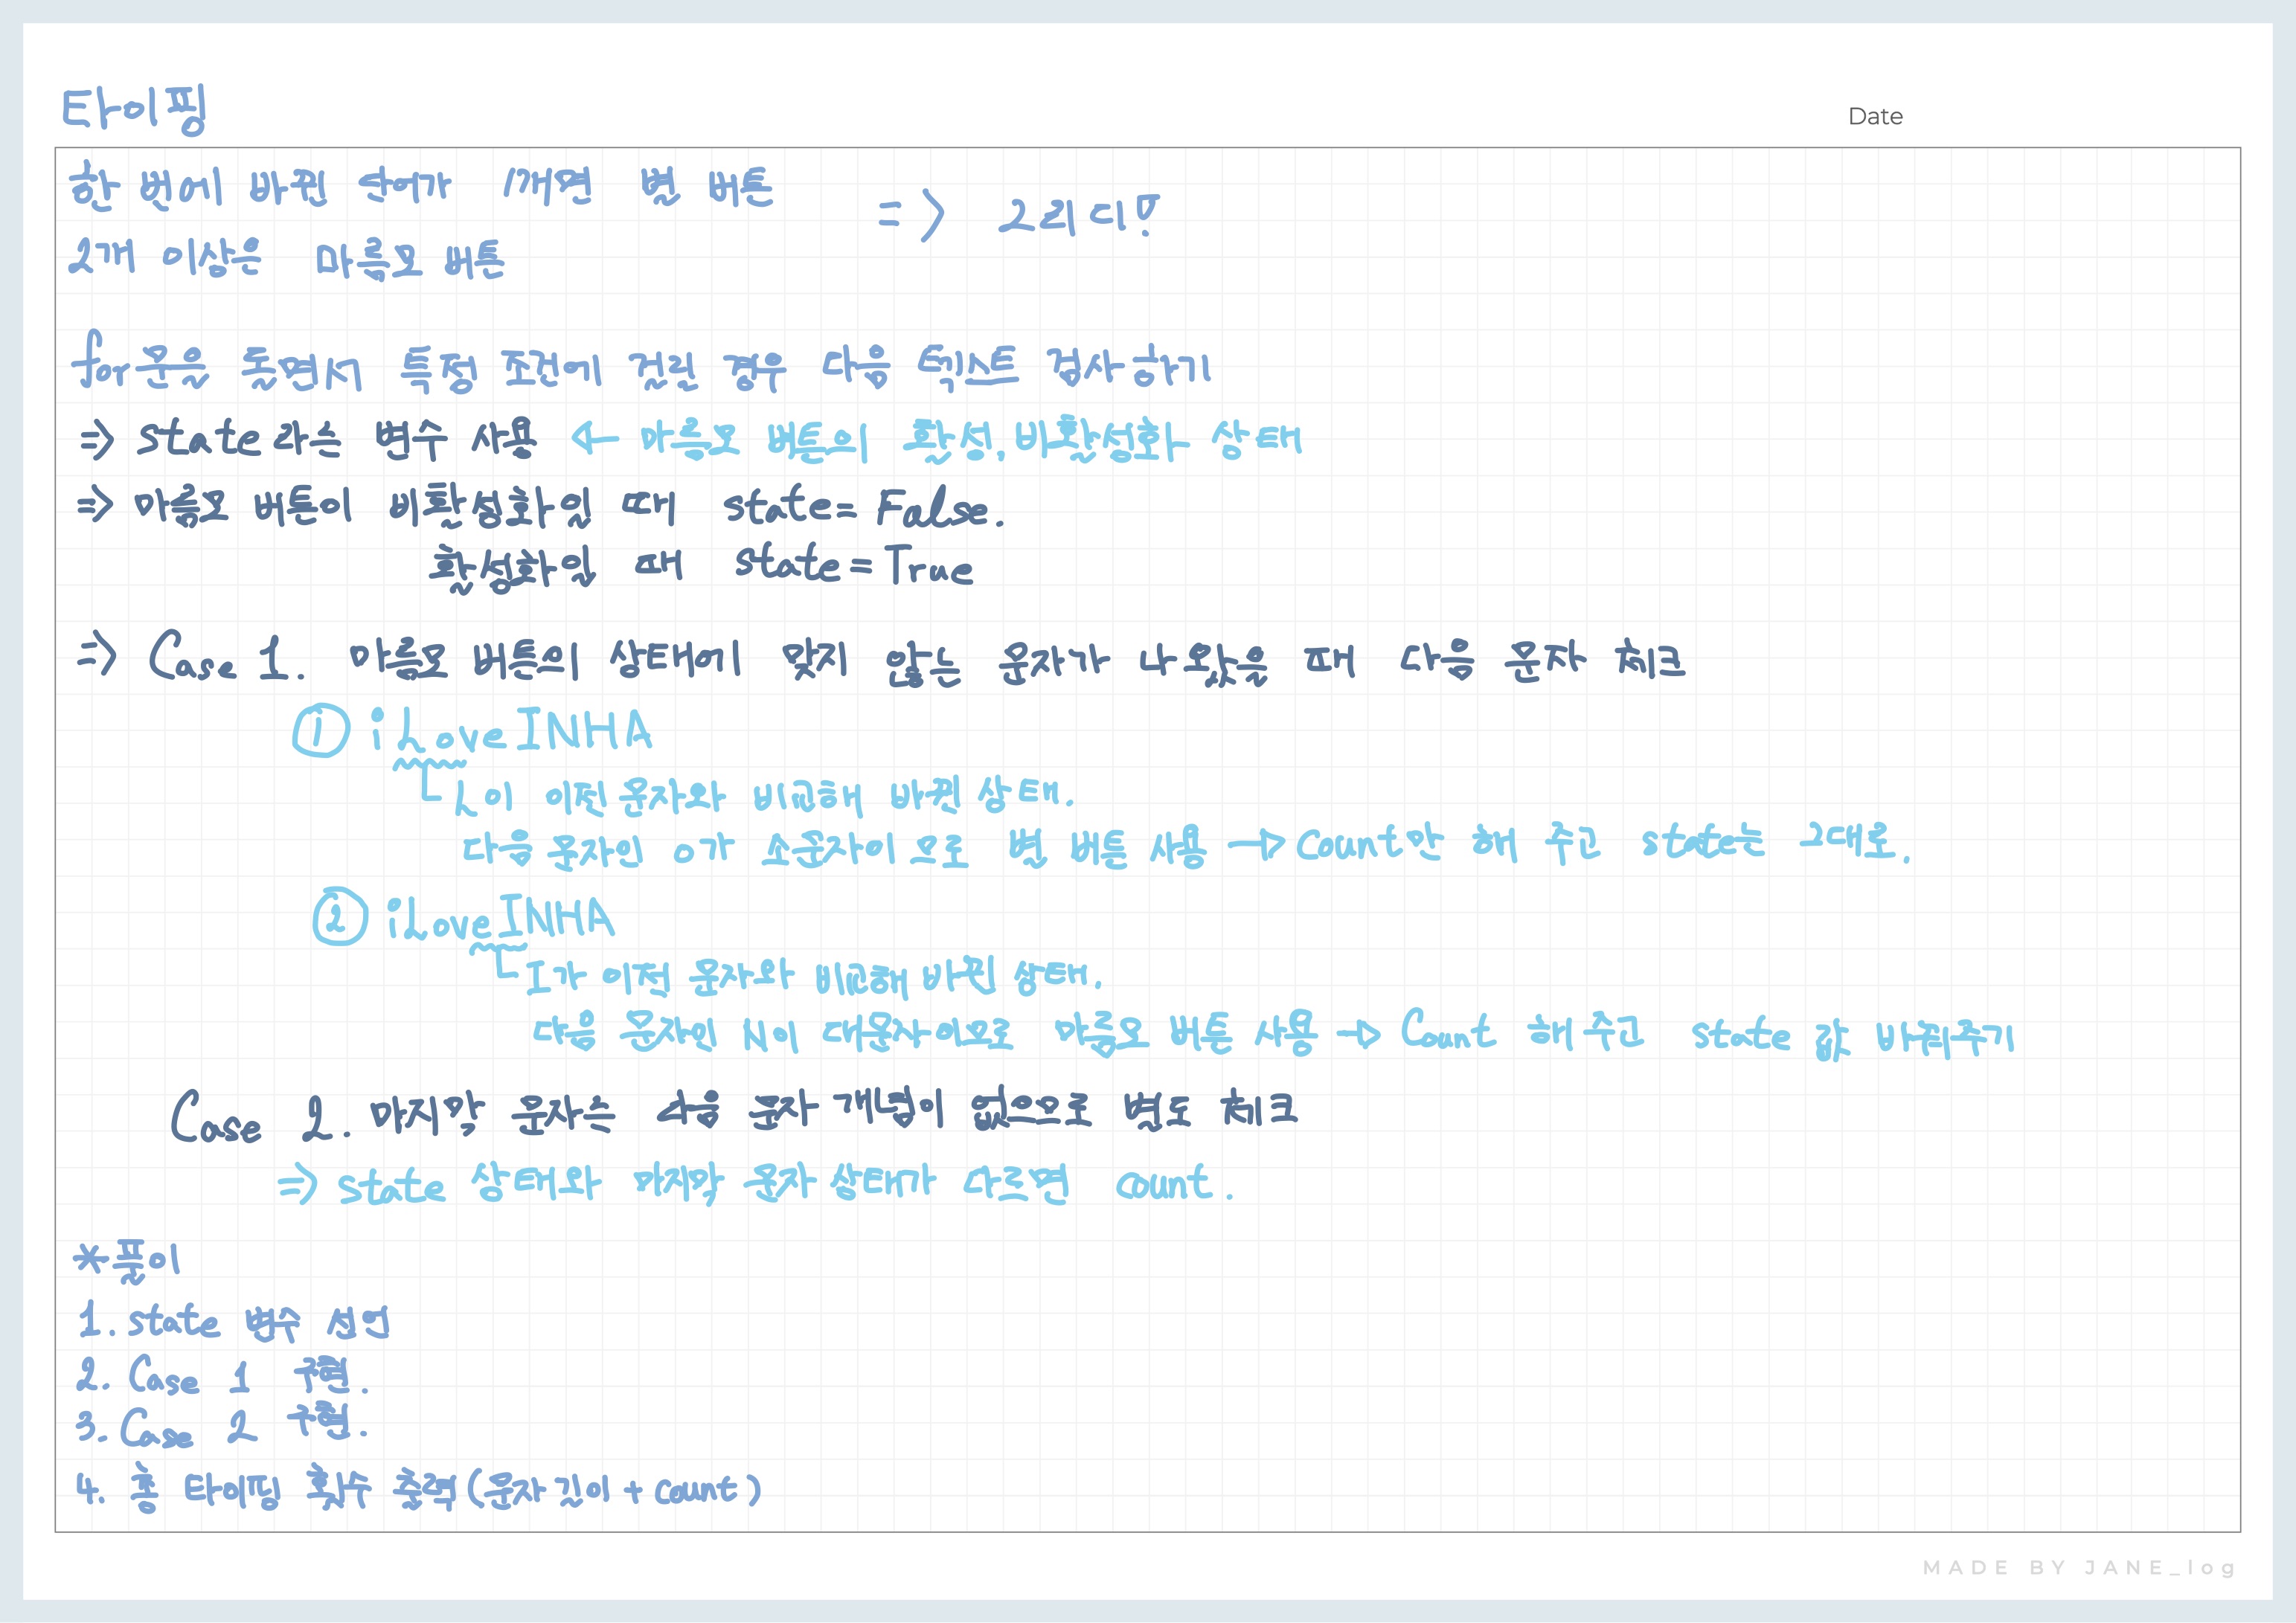 타이핑
Date
한 번에 바뀐 단어가 1개면 별 버튼
2개 이상은 마름모 버튼
=> 그리디!
for문을 돌면서 특정 조건에 걸린 경우 다음 텍스트 검사하기
=> state라는 변수 사용 <- 마름모 버튼의 활성, 비활성화 상태
=> 마름모 버튼이 비활성화일 때 state = False.
활성화일 때 state = True
=> Case 1. 마름모 버튼의 상태에 맞지 않는 문자가 나왔을 때 다음 문자 체크
① iLoveINHA
L이 이전 문자와 비교해 바뀐 상태.
다음 문자인 o가 소문자이므로 별 버튼 사용 -> Count만 해 주고 state는 그대로.
② iLoveINHA
I가 이전 문자와 비교해 바뀐 상태.
다음 문자인 N이 대문자이므로 마름모 버튼 사용 -> Count 해 주고 state 값 바꿔주기
Case 2. 마지막 문자는 다음 문자 개념이 없으므로 별도 체크
=> state 상태와 마지막 문자 상태가 다르면 count.
*풀이
1. state 변수 선언
2. Case 1 구현.
3. Case 2 구현.
4. 총 타이핑 횟수 출력(문자 길이 + count)
MADE BY JANE_log